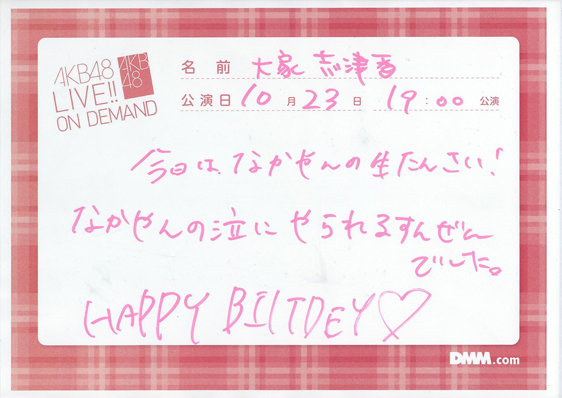 AKB48
LIVE!!
ON DEMAND
AKB
48
名前 大家志津香
公演日 10月23日 19:00 公演
今日は、なかやんの生たんさい!
なかやんの泣に やられるすんぜん
でした。
HAPPY BIITDEY♡
DMM.com